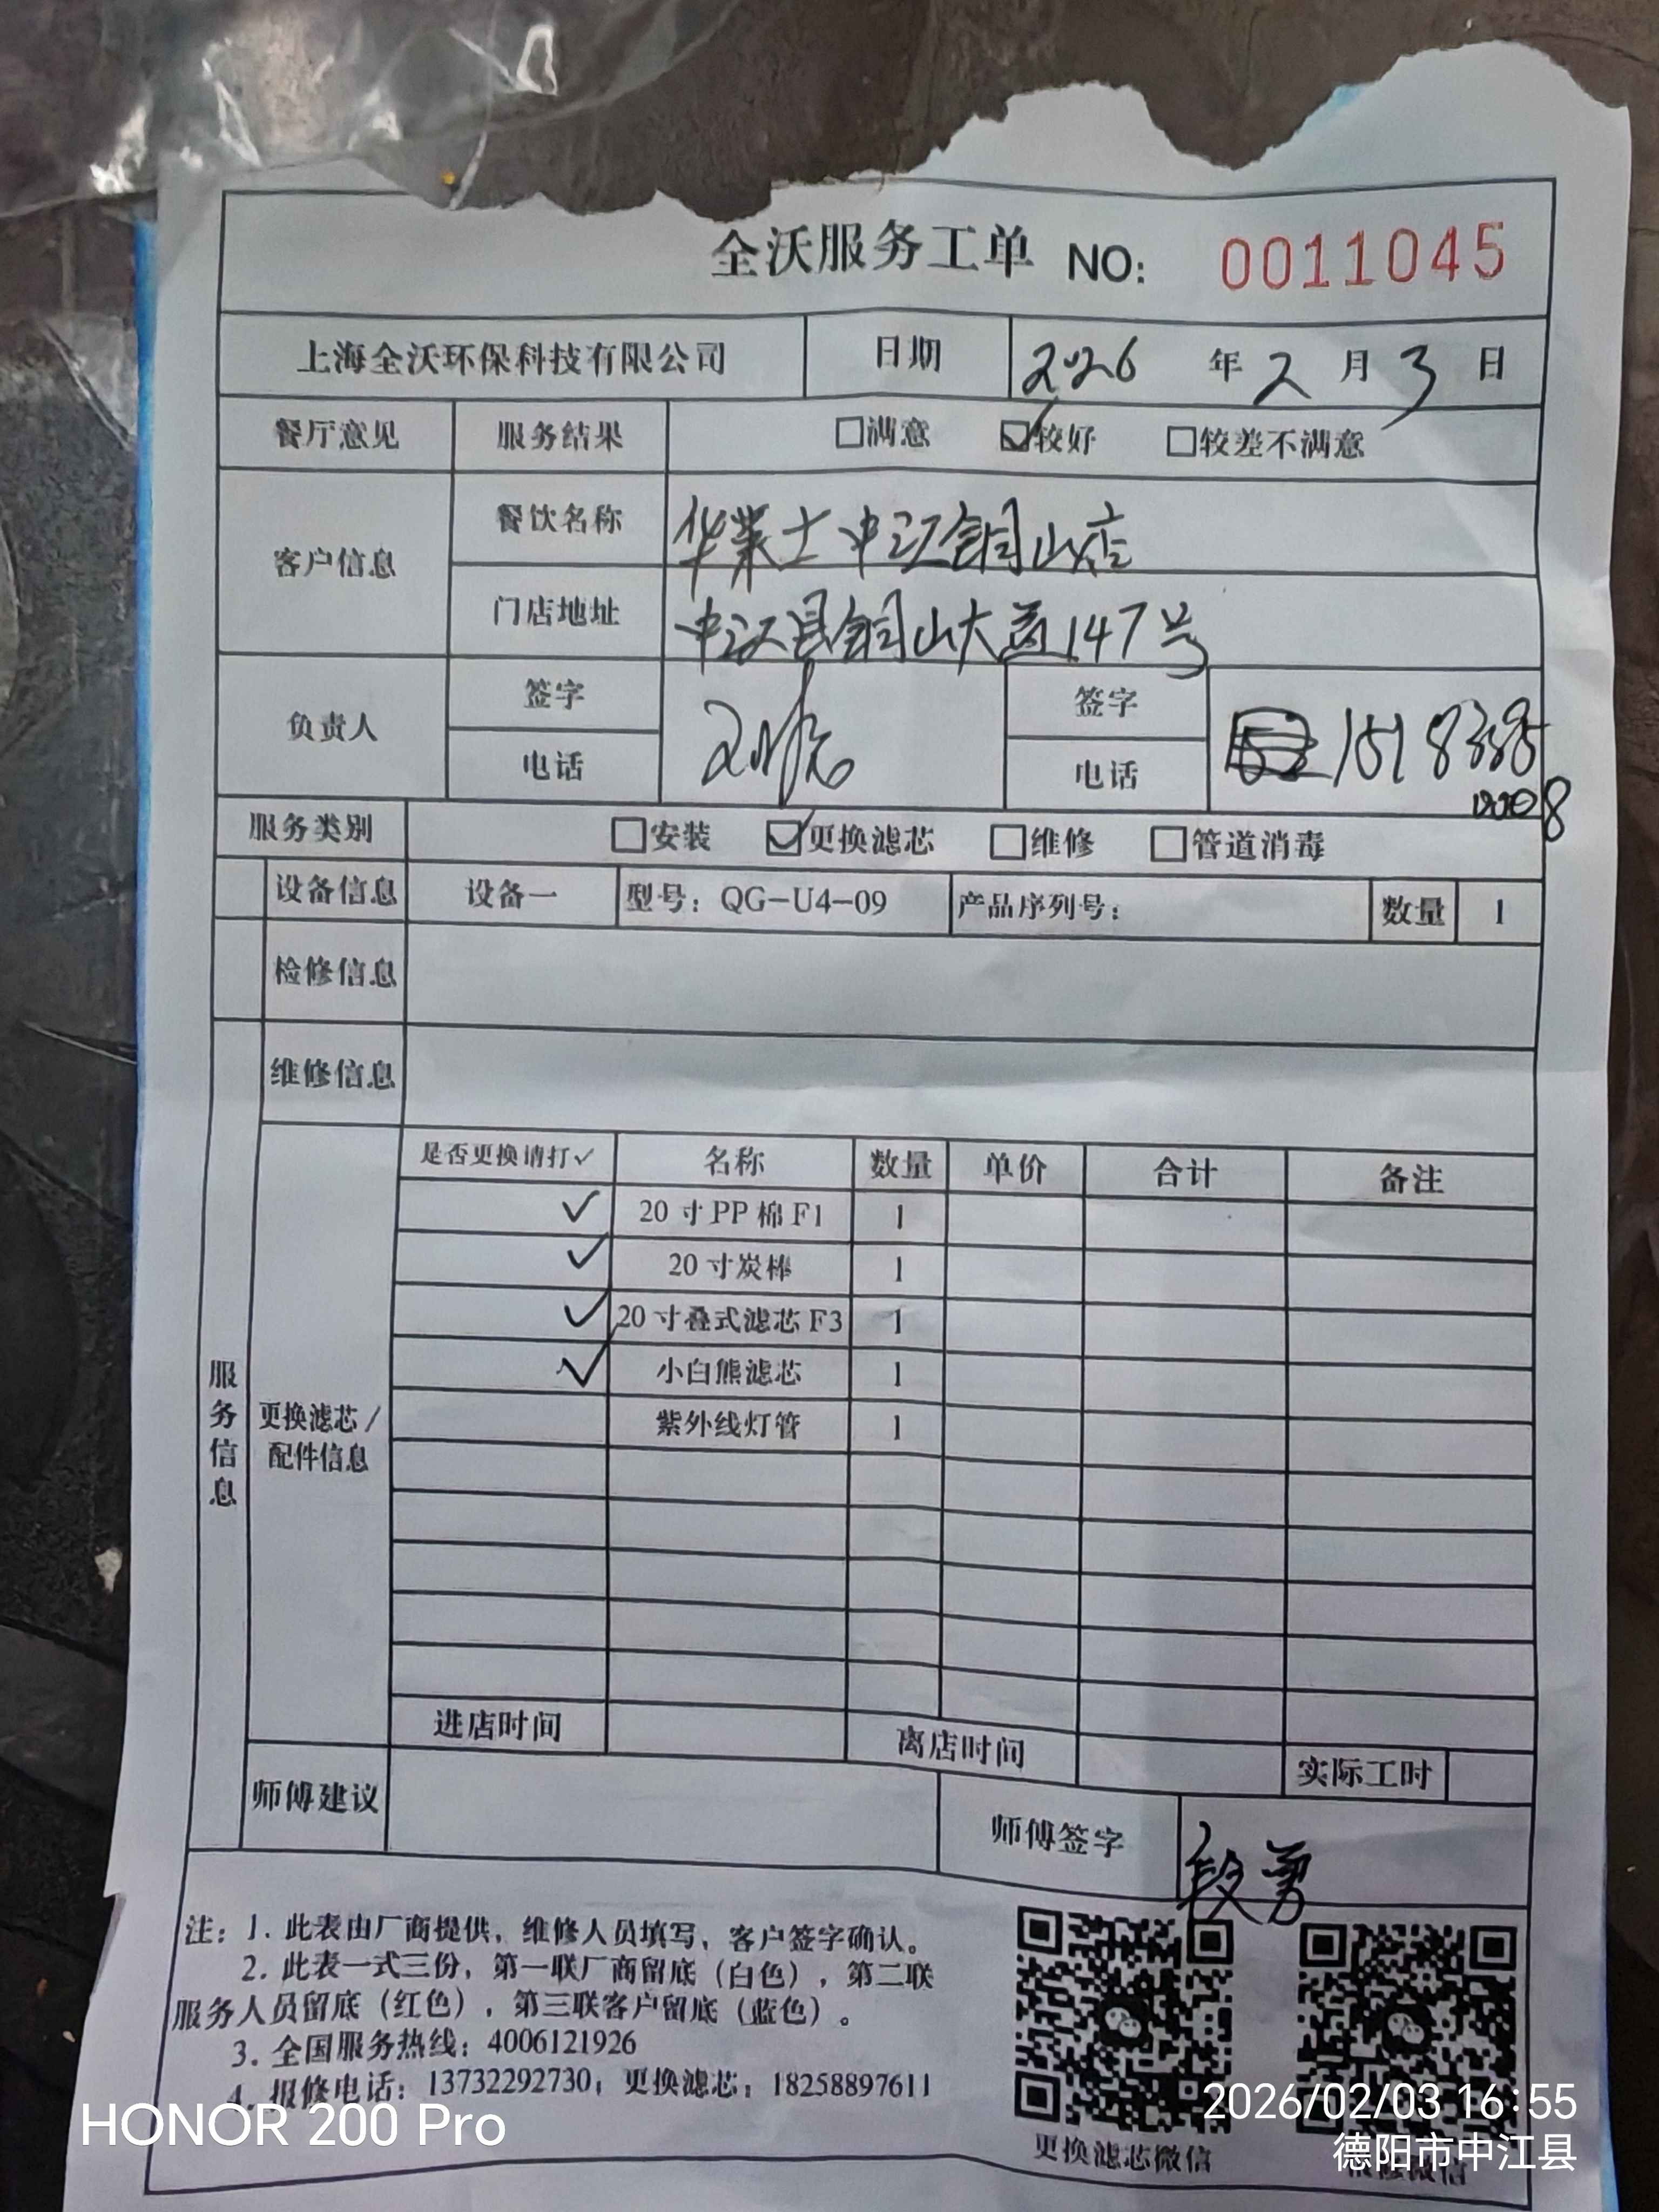 全沃服务工单 NO: 0011045
上海全沃环保科技有限公司 日期 2026 年 2 月 3 日
餐厅意见 服务结果 □满意 ☑较好 □较差不满意
客户信息 餐饮名称 华莱士中江铜山店
门店地址 中江县铜山大道147号
负责人 签字 签字
电话 电话 1518385
服务类别 □安装 ☑更换滤芯 □维修 □管道消毒
设备信息 设备一 型号：QG-U4-09 产品序列号： 数量 1
检修信息
维修信息
服务信息
更换滤芯/
配件信息
是否更换请打✓ 名称 数量 单价 合计 备注
✓ 20寸PP棉F1 1
✓ 20寸炭棒 1
✓ 20寸叠式滤芯F3 1
✓ 小白熊滤芯 1
紫外线灯管 1
进店时间 离店时间 实际工时
师傅建议 师傅签字 段勇
注：1. 此表由厂商提供，维修人员填写，客户签字确认。
2. 此表一式三份，第一联厂商留底（白色），第二联
服务人员留底（红色），第三联客户留底（蓝色）。
3. 全国服务热线：4006121926
4. 报修电话：13732292730；更换滤芯：18258897611
更换滤芯微信
HONOR 200 Pro
2026/02/03 16:55
德阳市中江县